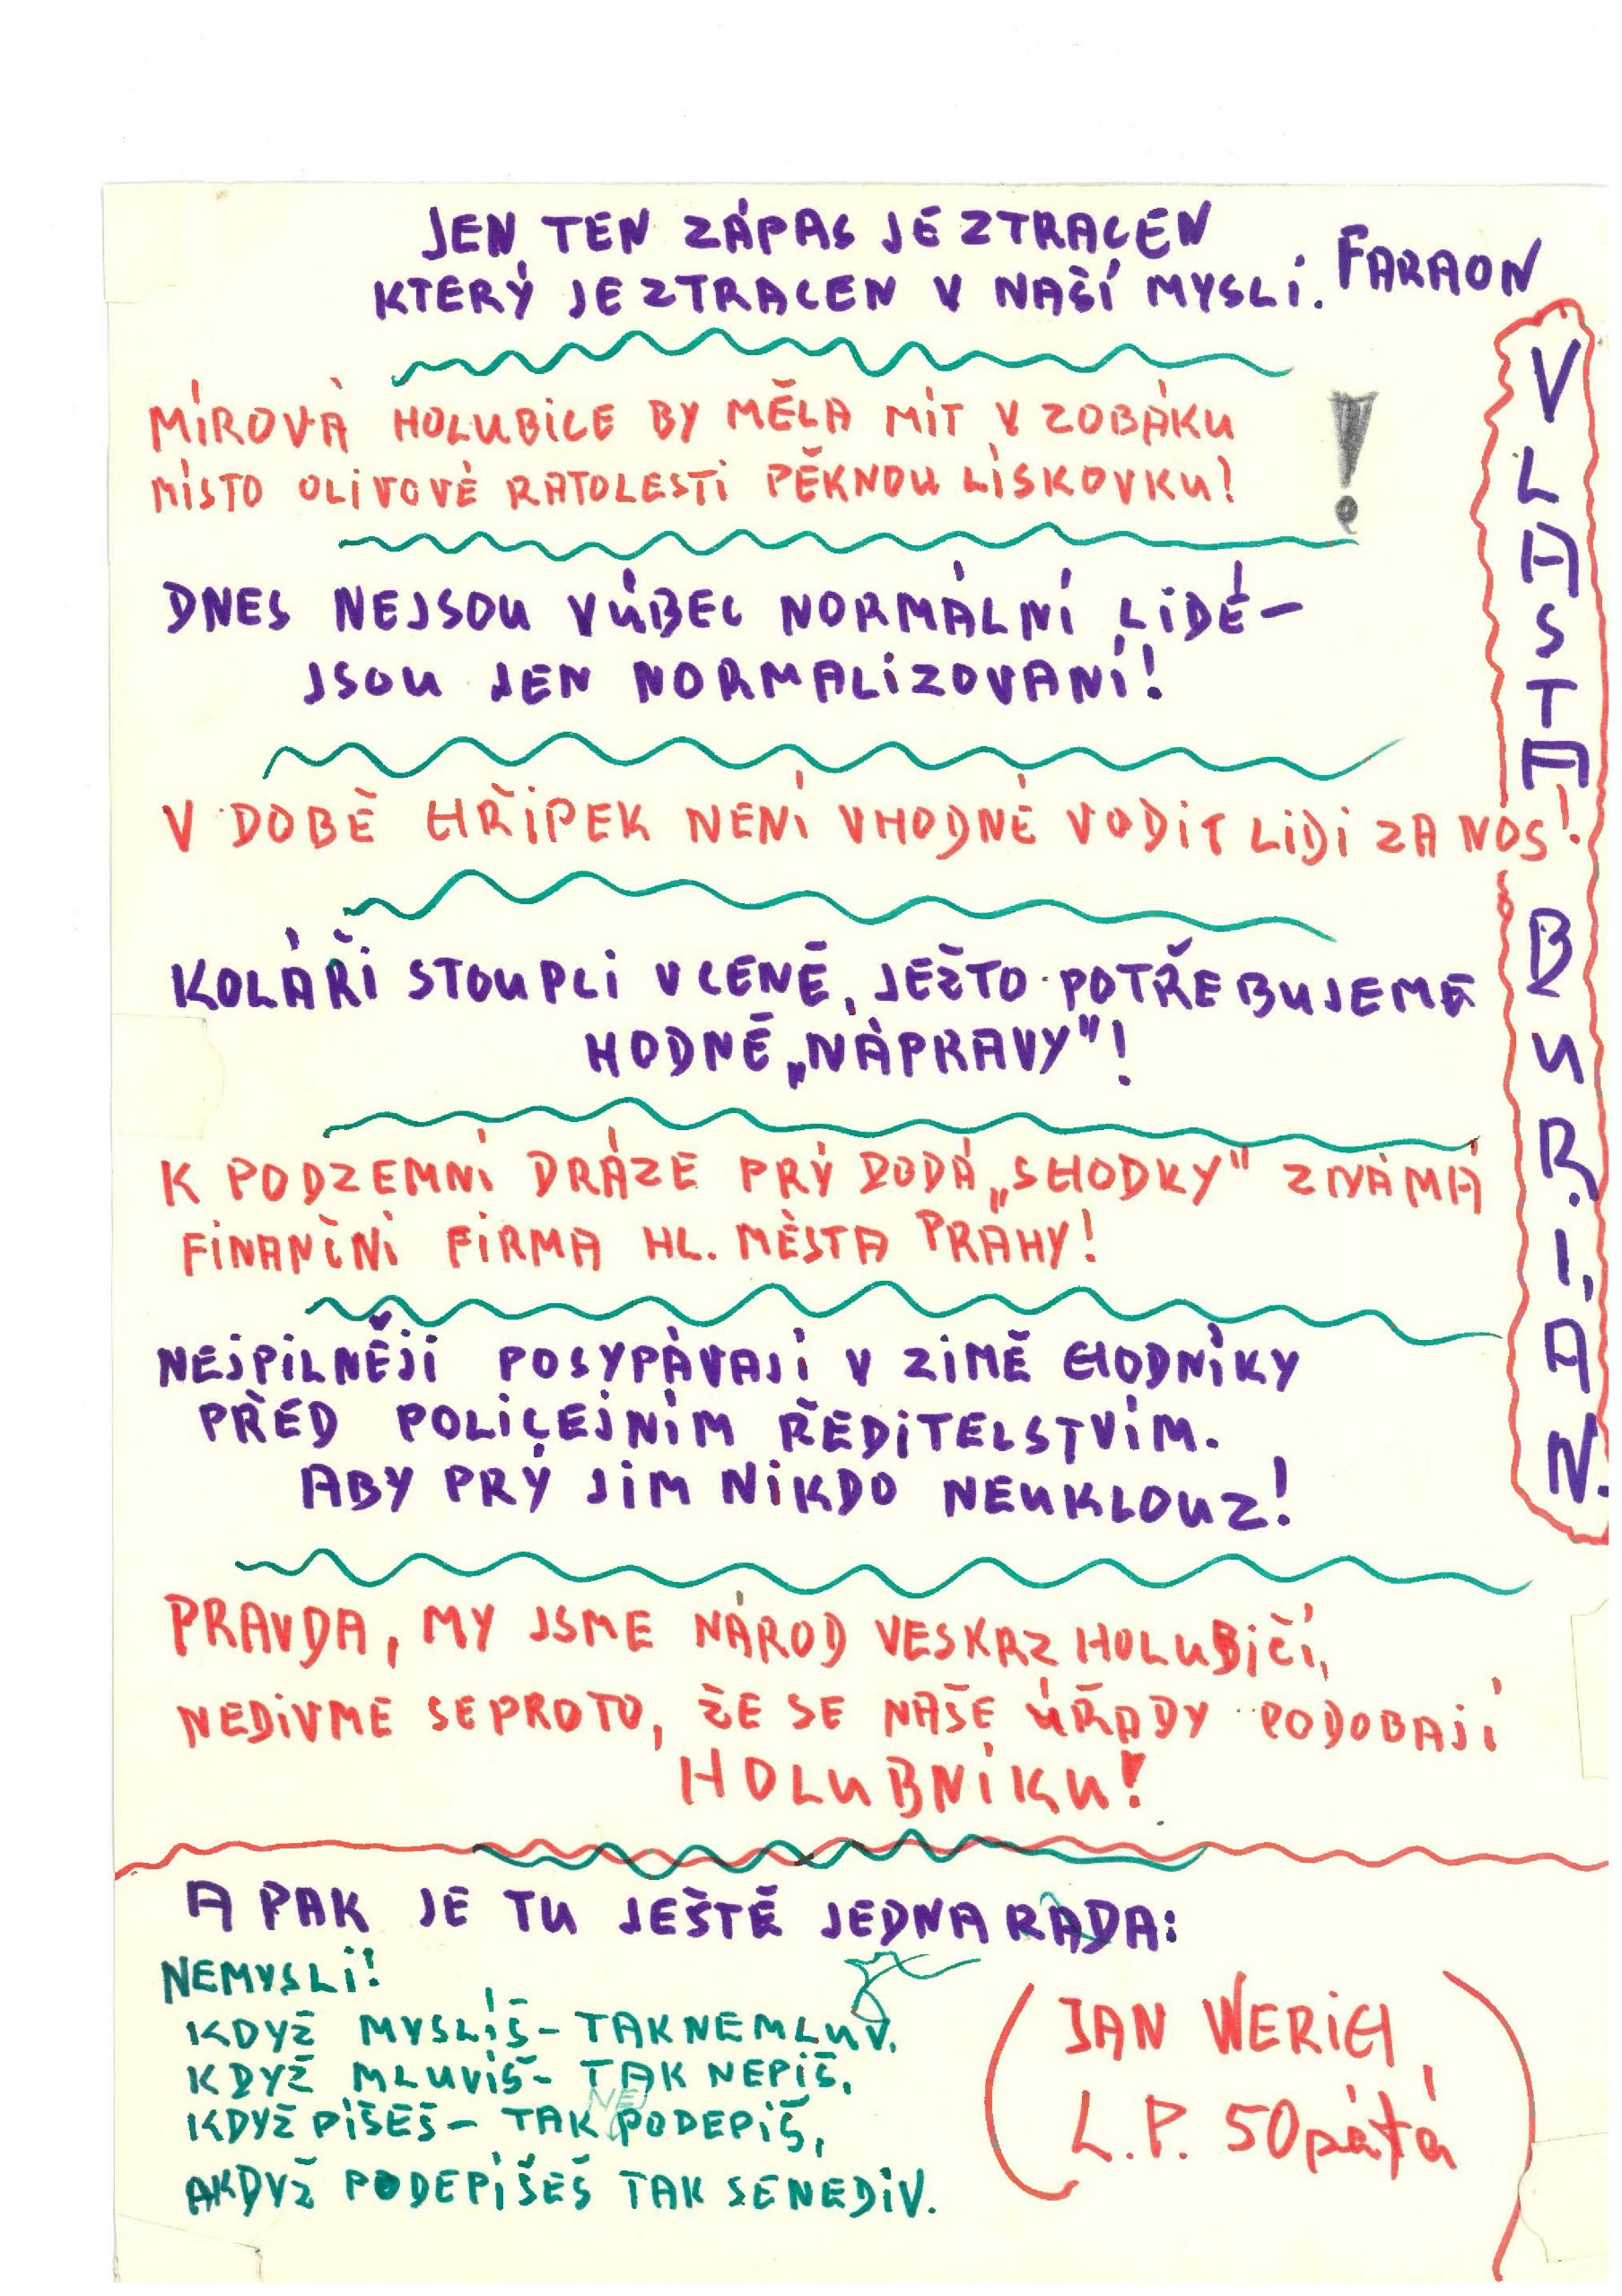 JEN TEN ZÁPAS JE ZTRACEN
KTERÝ JE ZTRACEN V NAŠÍ MYSLI. FARAON
MÍROVÁ HOLUBICE BY MĚLA MÍT V ZOBÁKU
MÍSTO OLIVOVÉ RATOLESTI PĚKNOU LÍSKOVKU!
!
DNES NEJSOU VŮBEC NORMÁLNÍ LIDÉ-
JSOU JEN NORMALIZOVANÍ!
V DOBĚ CHŘIPEK NENÍ VHODNÉ VODIT LIDI ZA NOS!
KOLÁŘI STOUPLI V CENĚ, JEŽTO POTŘEBUJEME
HODNĚ „NÁPRAVY"!
K PODZEMNÍ DRÁZE PRÝ DODÁ „SCHODKY" ZNÁMÁ
FINANČNÍ FIRMA HL. MĚSTA PRAHY!
NEJPILNĚJI POSYPÁVAJÍ V ZIMĚ CHODNÍKY
PŘED POLICEJNÍM ŘEDITELSTVÍM.
ABY PRÝ JIM NIKDO NEUKLOUZ!
PRAVDA, MY JSME NÁROD VESKRZ HOLUBIČÍ,
NEDIVME SE PROTO, ŽE SE NAŠE ÚŘADY PODOBAJÍ
HOLUBNÍKU!
VLASTA BURIAN.
A PAK JE TU JEŠTĚ JEDNA RADA:
NEMYSLI!
KDYŽ MYSLÍŠ - TAK NEMLUV.
KDYŽ MLUVÍŠ - TAK NEPIŠ.
KDYŽ PÍŠEŠ - TAK NEPODEPIŠ,
A KDYŽ PODEPÍŠEŠ TAK SE NEDIV.
(JAN WERICH,
L.P. 50pátá)